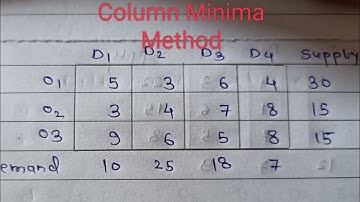 Column Minima
Method
D1 D2 D3 D4 Supply
O1 5 3 6 4 30
O2 3 4 7 8 15
O3 9 6 5 8 15
emand 10 25 18 7